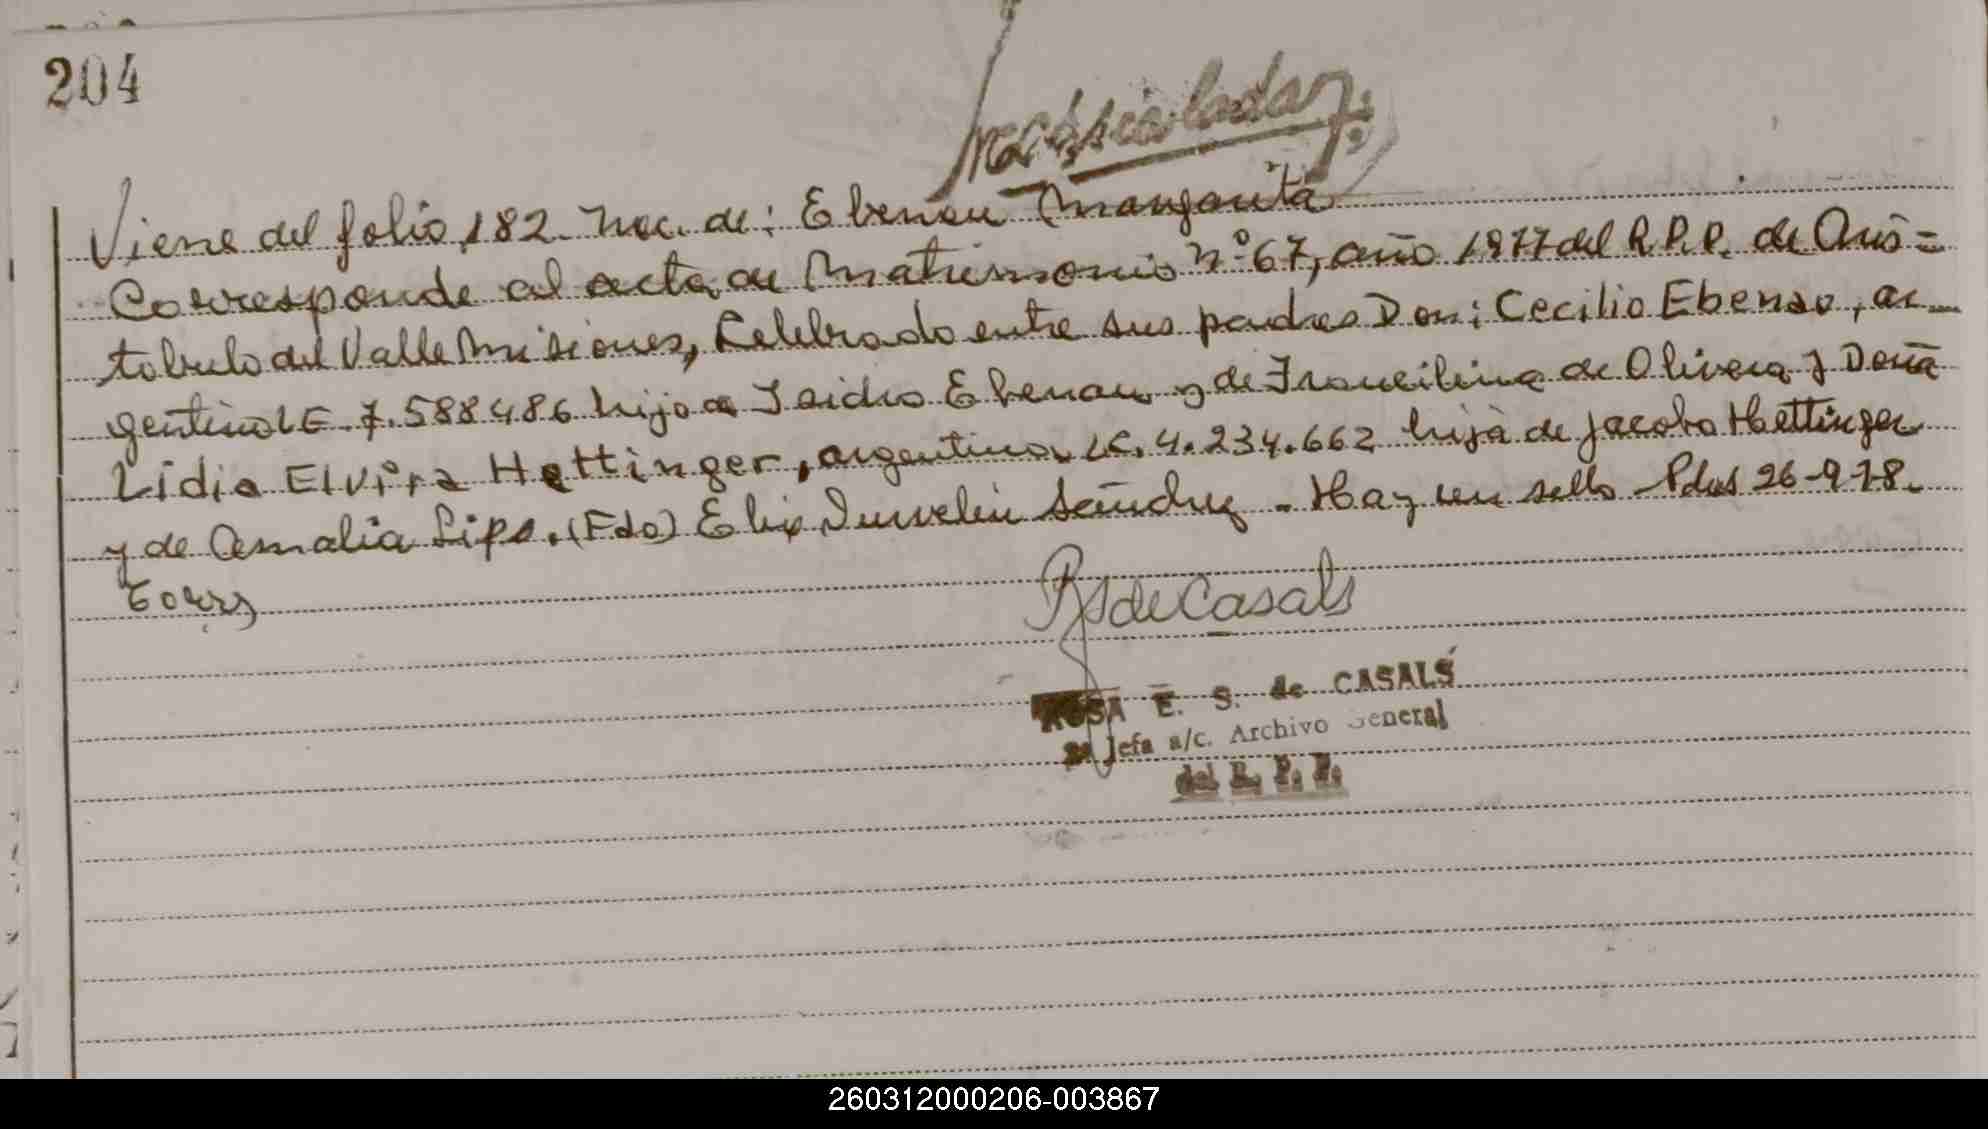 204
Viene del folio 182. Nac. de: Ebenau Margarita
Corresponde al acta de Matrimonio nº 67, año 1977 del R.P.P. de Aris=
tobulo del Valle Misiones, Celebrado entre sus padres Don: Cecilio Ebenao, ar
gentino LE. 7.588486 hijo de Isidro Ebenau y de Francilina de Olivera y Doña
Lidia Elvira Hettinger, argentina LC. 4.234.662 hija de Jacobo Hettinger
y de Amalia Lips. (Fdo) Sanchez - Hay un sello - Pdas 26-9-78.
RS de Casals
ROSA E. S. de CASALS
Jefa a/c. Archivo General
del R. P. P.
260312000206-003867